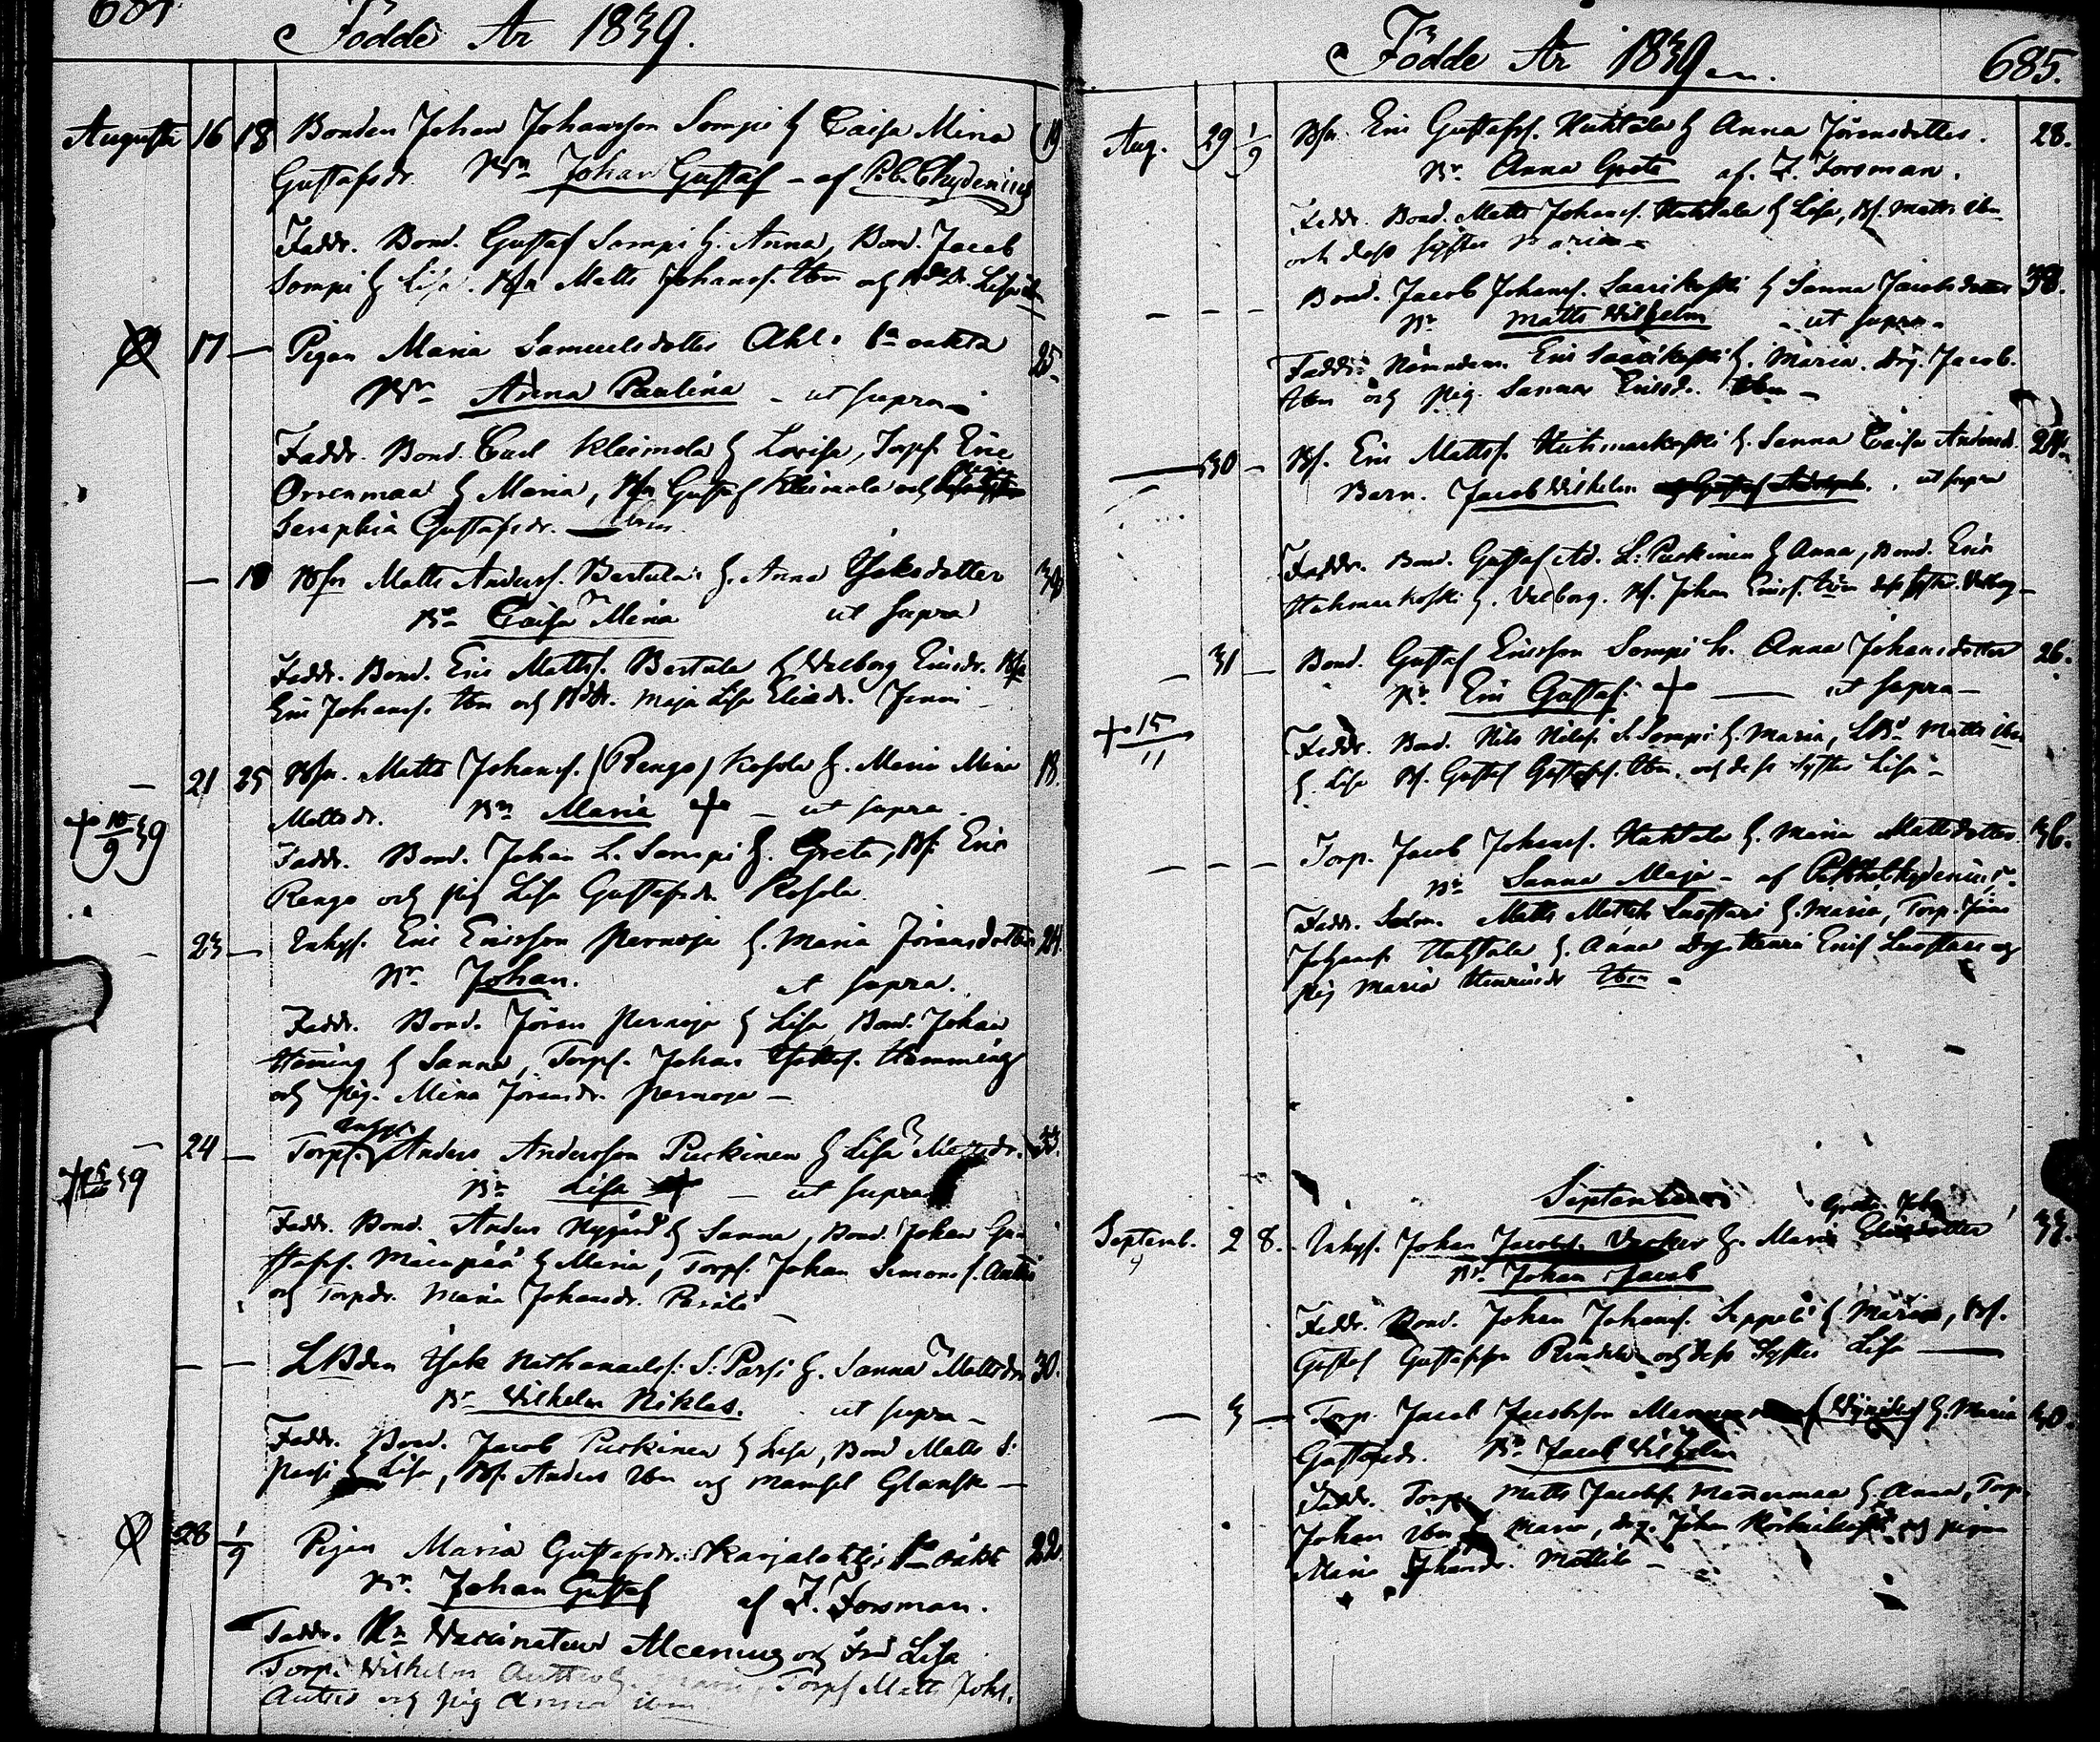 684.
Födde År 1839.
Augusti 16 18 Bonden Johan Johansson Sompi h Caisa Mina 19
Gustafsdr. Bn Johan Gustaf - af P. Chydenius
Faddr. Bond. Gustaf Sompi h. Anna, Bond. Jacob
Sompi h Lisa. Bsn Matts Johanss. Ibm och Lisa
17 — Pigan Maria Samuelsdotter Ahl. oäkta 25.
Bn Anna Paulina - ut supra
Faddr. Bond. Carl Kleimola h Lovisa, Torpf. Eric
Orrenmaa h Maria, Bsn Gustaf Kleimola och
Seraphia Gustafsdr. Ibm.
— 18 Bsn Matts Anderss. Bertula h. Anna Isaksdotter
Bn Caisa Mina ut supra
Faddr. Bond. Eric Mattss. Bertula h Walborg Ericsdr. Bsn
Eric Johanss. Ibm och Maja Lisa Eliedr.
21 25 Bsn. Matts Johanss. (Rengo) Kosola h. Maria Mina 18.
Mattsdr. Bn Maria + — ut supra
+ 10/9 39
Faddr. Bond. Johan L. Sompi h. Greta, Bs. Eric
Rengo och pig Lisa Gustafsdr Kosola.
23 — Inhys. Eric Ericsson Pernoja h. Maria Jöransdotter 24.
Bn Johan. ut supra.
Faddr. Bond. Jöran Pernoja h Lisa, Bond. Johan
Häning h Sanna, Torpf. Johan Hemming
och pig. Mina Jöransdr. Pernoja —
24 — Torpf. Anders Andersson Puskinen h Lisa Mattsdr. 33.
Bn Lisa + — ut supra
39
Faddr. Bond. Anders Nygård h Sanna, Bond. Johan Gu-
stafss. Mäenpää h Maria, Torpf. Johan Simons s. Antti
och Torpdr. Maria Johansdr.
— — LBden Isak Nathanaelss. S. Passi h. Sanna Mattsdr 30.
Bn Vilhelm Niklas. ut supra —
Faddr. Bond. Jacob Puskinen h Lisa, Bond Matts S.
Passi h Lisa, Bs. Anders Ibm och Mamsel Glansk —
28 1/9 Pigan Maria Gustafsdr. Karjalahti oäkta 22
Bn Johan Gustaf af F. Forsman.
Faddr. Hn Vaccinateur Alcenius och Fru Lisa
Torp. Wilhelm Anttis h. Torpf Matts Johs.
Anttis och pig Anna ibm
Födde År 1839 685.
Aug. 29 1/9 Bsn. Eric Gustafss. Huhtala h Anna Jöransdotter. 28.
Bn. Anna Greta af. F. Forsman.
Faddr. Bond. Matts Johanss. Huhtala h Lisa, Bs. Matts ibm
och dess syster Maria —
— — — Bond. Jacob Johanss. Saarikoski h Sanna Jacobsdotter 38.
Bn Matts Wilhelm — ut supra —
Faddr. Nämndem. Eric Saarikoski h. Maria. Drg. Jacob.
Ibm och pig. Sanna Ericsd. Ibm —
30 — Bs. Eric Mattss. Huhmarkoski h. Sanna Caisa Andersd. 24.
Barn. Jacob Wilhelm ut supra
Faddr. Bond. Gustaf Ad. L. Puskinen h Anna, Bond. Eric
Huhmarkoski h. Valborg. Bs. Johan Ericss. Ibm dess syster Valborg —
— 31 — Bond. Gustaf Ericsson Sompi h. Anna Johansdotter 26.
Bn. Eric Gustaf. + — ut supra —
+ 15/11
Faddr. Bond. Nils Nilss. S. Sompi h Maria, LBd. Matts ibm
h. Lisa Bs. Gustaf Gustafss. Ibm. och dess syster Lisa —
— — — Torp. Jacob Johanss. Huhtala h. Maria Mattsdotter 36.
Bn Sanna Maja — af Chydenius.
Faddr. Matts Luostari h. Maria, Torp. Jöns
Johanss. Huhtala h. Anna Drg Henric Ericss Luostari och
pig Maria Henricsdr Ibm —
September
Septemb. 2 8. Inhys. Johan Jacobss. h. Maria Greta Joh
33.
Bn. Johan Jacob
Faddr. Bond. Johan Johanss. Seppälä h Maria, Bs.
Gustaf Gustafsson och dess Syster Lisa —
— 3 — Torp. Jacob Jacobsson h. Maria 40.
Gustafsdr. Bn Jacob Vilhelm
Faddr. Torp. Matts Jacobss. Mannermaa h Anna, Torp.
Johan ibm h Maria, drg. Johan och pigan
Maria Johansdr. Mattila —